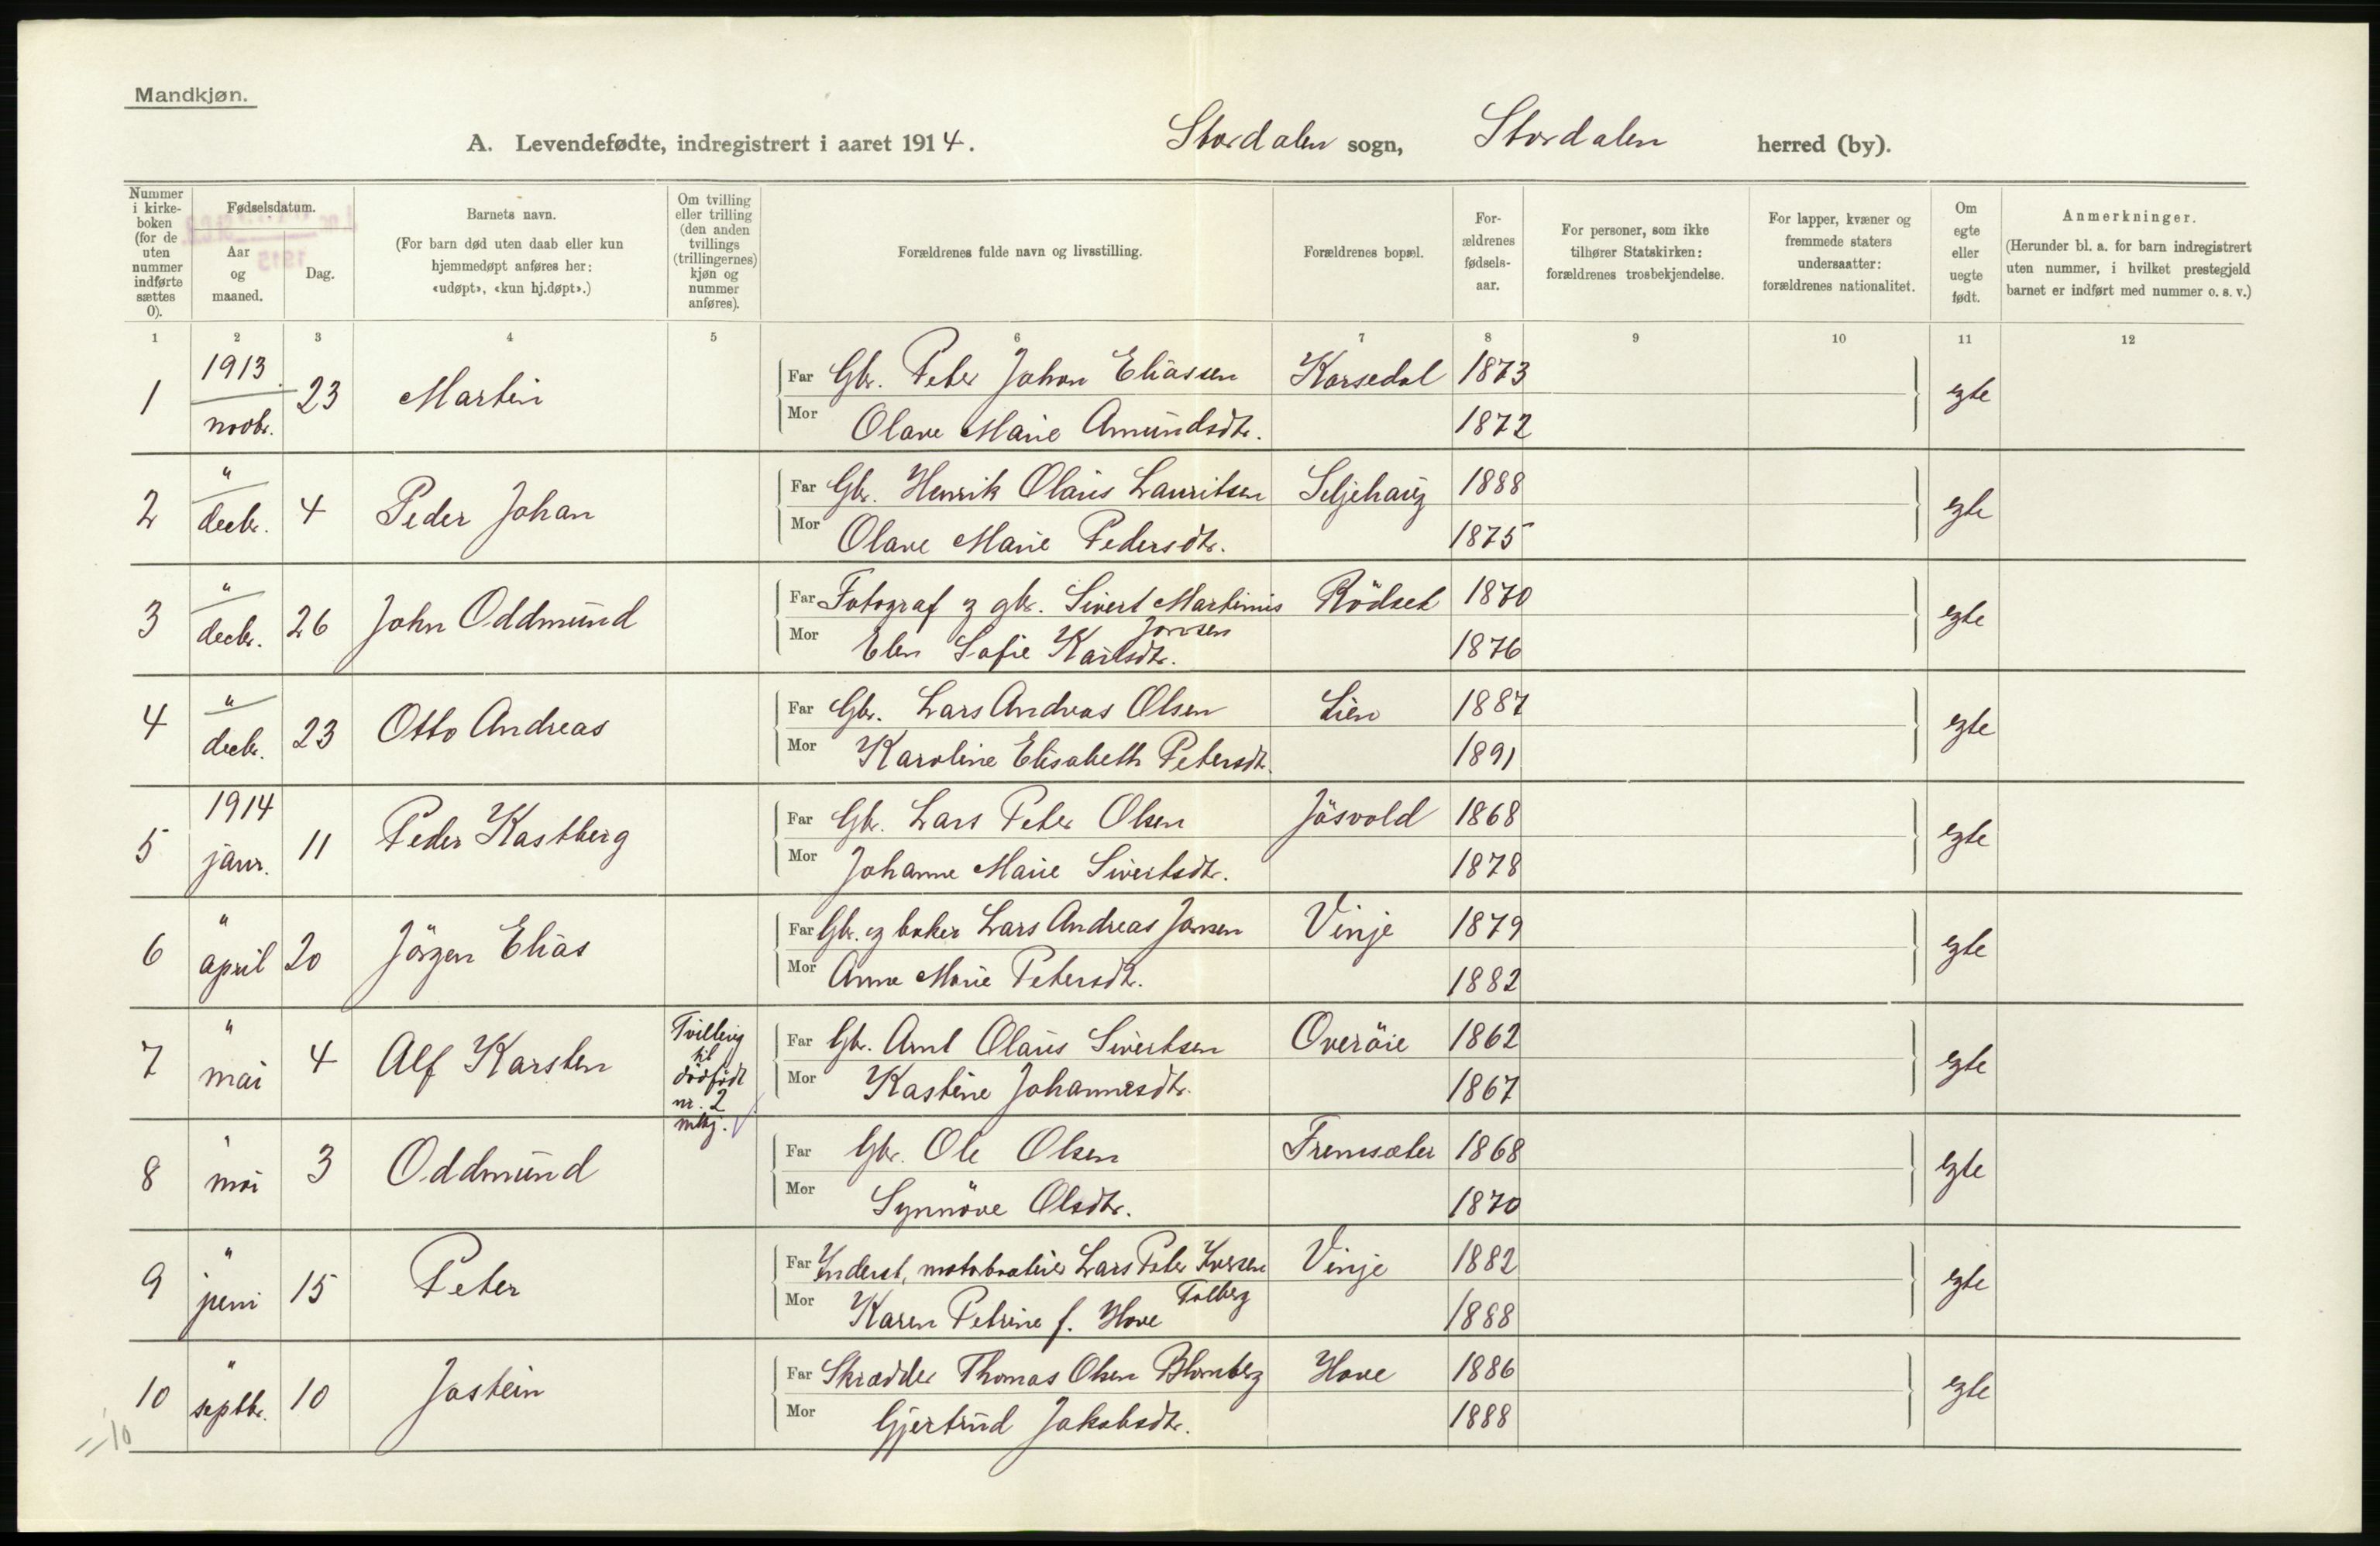 Mandkjøn.
A. Levendefødte, indregistrert i aaret 1914. Stordalen sogn, Stordalen herred (by).
Nummer i kirke-boken (for de uten nummer indførte sættes 0).
Fødselsdatum.
Aar og maaned.
Dag.
Barnets navn.
(For barn død uten daab eller kun hjemmedøpt anføres her: «udøpt», «kun hj.døpt».)
Om tvilling eller trilling (den anden tvillings (trillingernes) kjøn og nummer anføres).
Forældrenes fulde navn og livsstilling.
Forældrenes bopæl.
For-ældrenes fødsels-aar.
For personer, som ikke tilhører Statskirken: forældrenes trosbekjendelse.
For lapper, kvæner og fremmede staters undersaatter: forældrenes nationalitet.
Om egte eller uegte født.
Anmerkninger.
(Herunder bl. a. for barn indregistrert uten nummer, i hvilket prestegjeld barnet er indført med nummer o. s. v.)
1 2 3 4 5 6 7 8 9 10 11 12
1 1913 novbr. 23 Martin Far Gbr. Peter Johan Eliassen Korsedal 1873 egte
Mor Olave Marie Amundsdtr. 1872
2 " decbr. 4 Peder Johan Far Gbr. Henrik Olaus Lauritsen Seljehaug 1888 egte
Mor Olave Marie Pedersdtr. 1875
3 " decbr. 26 John Oddmund Far Fotograf og gbr. Sivert Martinus Jonsen Rödset 1870 egte
Mor Elen Sofie Karlsdtr. 1876
4 " decbr. 23 Otto Andreas Far Gbr. Lars Andreas Olsen Lien 1887 egte
Mor Karoline Elisabeth Petersdtr. 1891
5 1914 janr. 11 Peder Kastberg Far Gbr. Lars Peter Olsen Jösvold 1868 egte
Mor Johanne Marie Sivertsdtr. 1878
6 " april 20 Jörgen Elias Far Gbr. og baker Lars Andreas Jonsen Vinje 1879 egte
Mor Anne Marie Petersdtr. 1882
7 " mai 4 Alf Karsten Tvilling til dödfödt nr. 2 mkj. Far Gbr. Arnt Olaus Sivertsen Overöie 1862 egte
Mor Kastine Johannesdtr. 1867
8 " mai 3 Oddmund Far Gbr. Ole Olsen Fremsæter 1868 egte
Mor Synnöve Olsdtr. 1870
9 " juni 15 Peter Far Inderst, Lars Peter Iversen Vinje 1882 egte
Mor Karen Petrine f. Hove 1888
10 " septbr. 10 Jostein Far Skrædder Thomas Olsen Blomberg Hove 1886 egte
Mor Gjertrud Jakobsdtr. 1888
=10